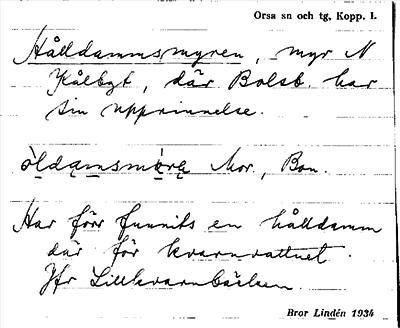 Orsa sn och tg, Kopp. l.
Hålldammsmyren, myr N
Kålbyt, där Bolsb. har
sin upprinnelse.
Mor., Bon.
Har förr funnits en hålldamm
där för kvarnvattnet.
Jfr Lillkvarnbäcken.
Bror Lindén 1934